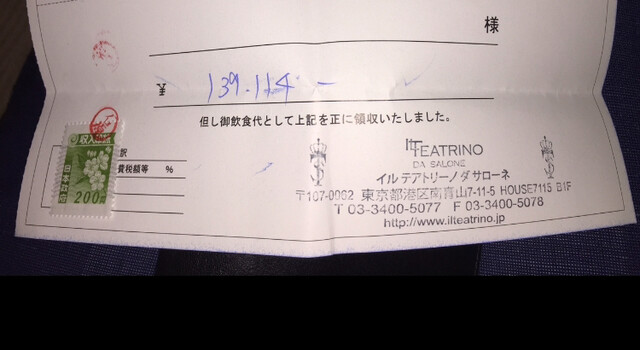 様
¥ 139.114 -
但し御飲食代として上記を正に領収いたしました。
収入印紙
日本政府
200
訳
費税額等 %
IL TEATRINO
DA SALONE
イル テアトリーノ ダ サローネ
〒107-0062 東京都港区南青山7-11-5 HOUSE7115 B1F
T 03-3400-5077 F 03-3400-5078
http://www.ilteatrino.jp